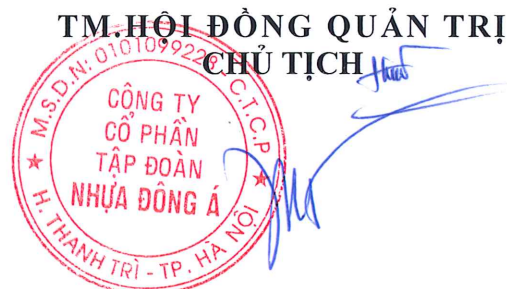 TM.HỘI ĐỒNG QUẢN TRỊ
CHỦ TỊCH
M.S.D.N: 0101099228 - C.T.C.P
CÔNG TY
CỔ PHẦN
TẬP ĐOÀN
NHỰA ĐÔNG Á
H. THANH TRÌ - TP. HÀ NỘI